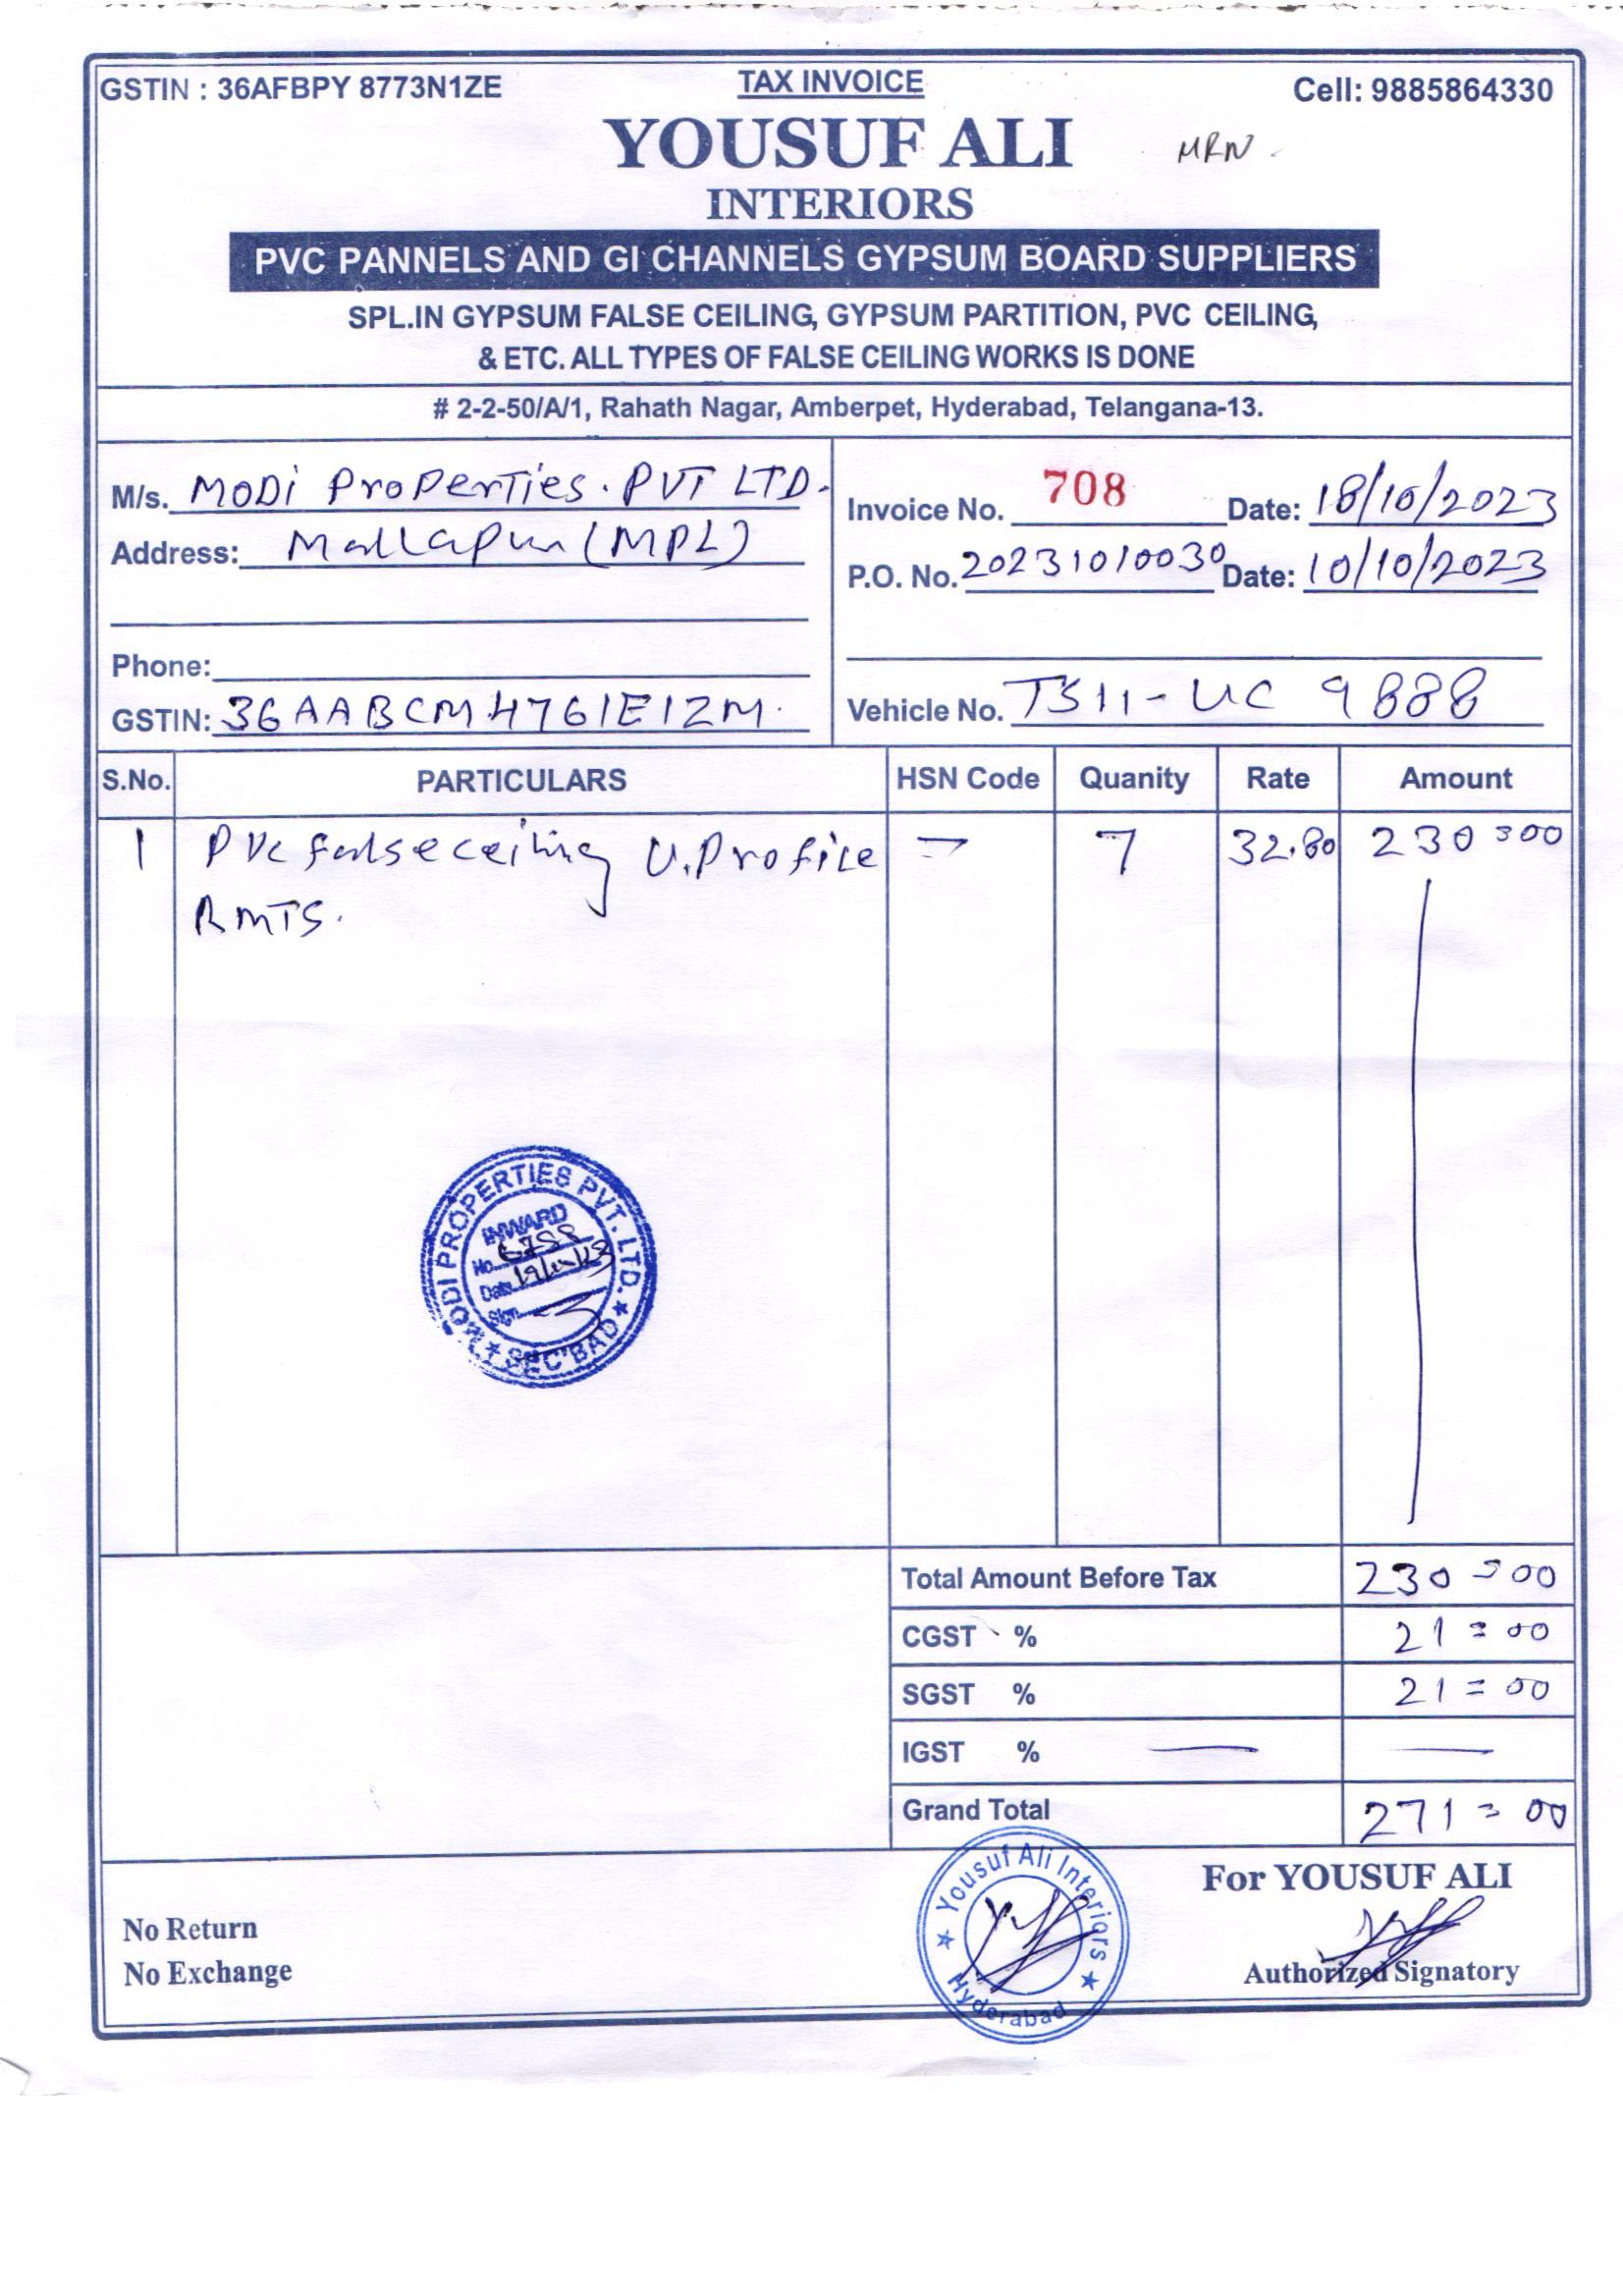 GSTIN : 36AFBPY 8773N1ZE
TAX INVOICE
Cell: 9885864330
YOUSUF ALI
MRN
INTERIORS
PVC PANNELS AND GI CHANNELS GYPSUM BOARD SUPPLIERS
SPL.IN GYPSUM FALSE CEILING, GYPSUM PARTITION, PVC CEILING,
& ETC. ALL TYPES OF FALSE CEILING WORKS IS DONE
# 2-2-50/A/1, Rahath Nagar, Amberpet, Hyderabad, Telangana-13.
M/s. MODi ProPerties. PVT LTD.
Address: Mallapur (MPL)
Phone:
GSTIN: 36AABCM4761E1ZM.
Invoice No. 708 Date: 18/10/2023
P.O. No. 20231010030 Date: 10/10/2023
Vehicle No. TS11-UC 9888
S.No. PARTICULARS HSN Code Quanity Rate Amount
1 PVC false ceiling U.Profile — 7 32.80 230=00
RMTS.
MODI PROPERTIES PVT. LTD.
INWARD
No.
Date
Sign
SEC'BAD
Total Amount Before Tax 230=00
CGST % 21=00
SGST % 21=00
IGST % — —
Grand Total 271=00
Yousuf Ali Interiors
Hyderabad
For YOUSUF ALI
No Return
No Exchange
Authorized Signatory